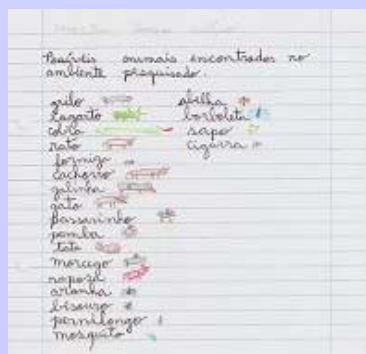 Possíveis animais encontrados no
ambiente pesquisado.
grilo
lagarto
cobra
rato
formiga
cachorro
galinha
gato
Passarinho
pomba
tatu
morcego
raposa
aranha
besouro
pernilongo
mosquito
abelha
borboleta
sapo
cigarra